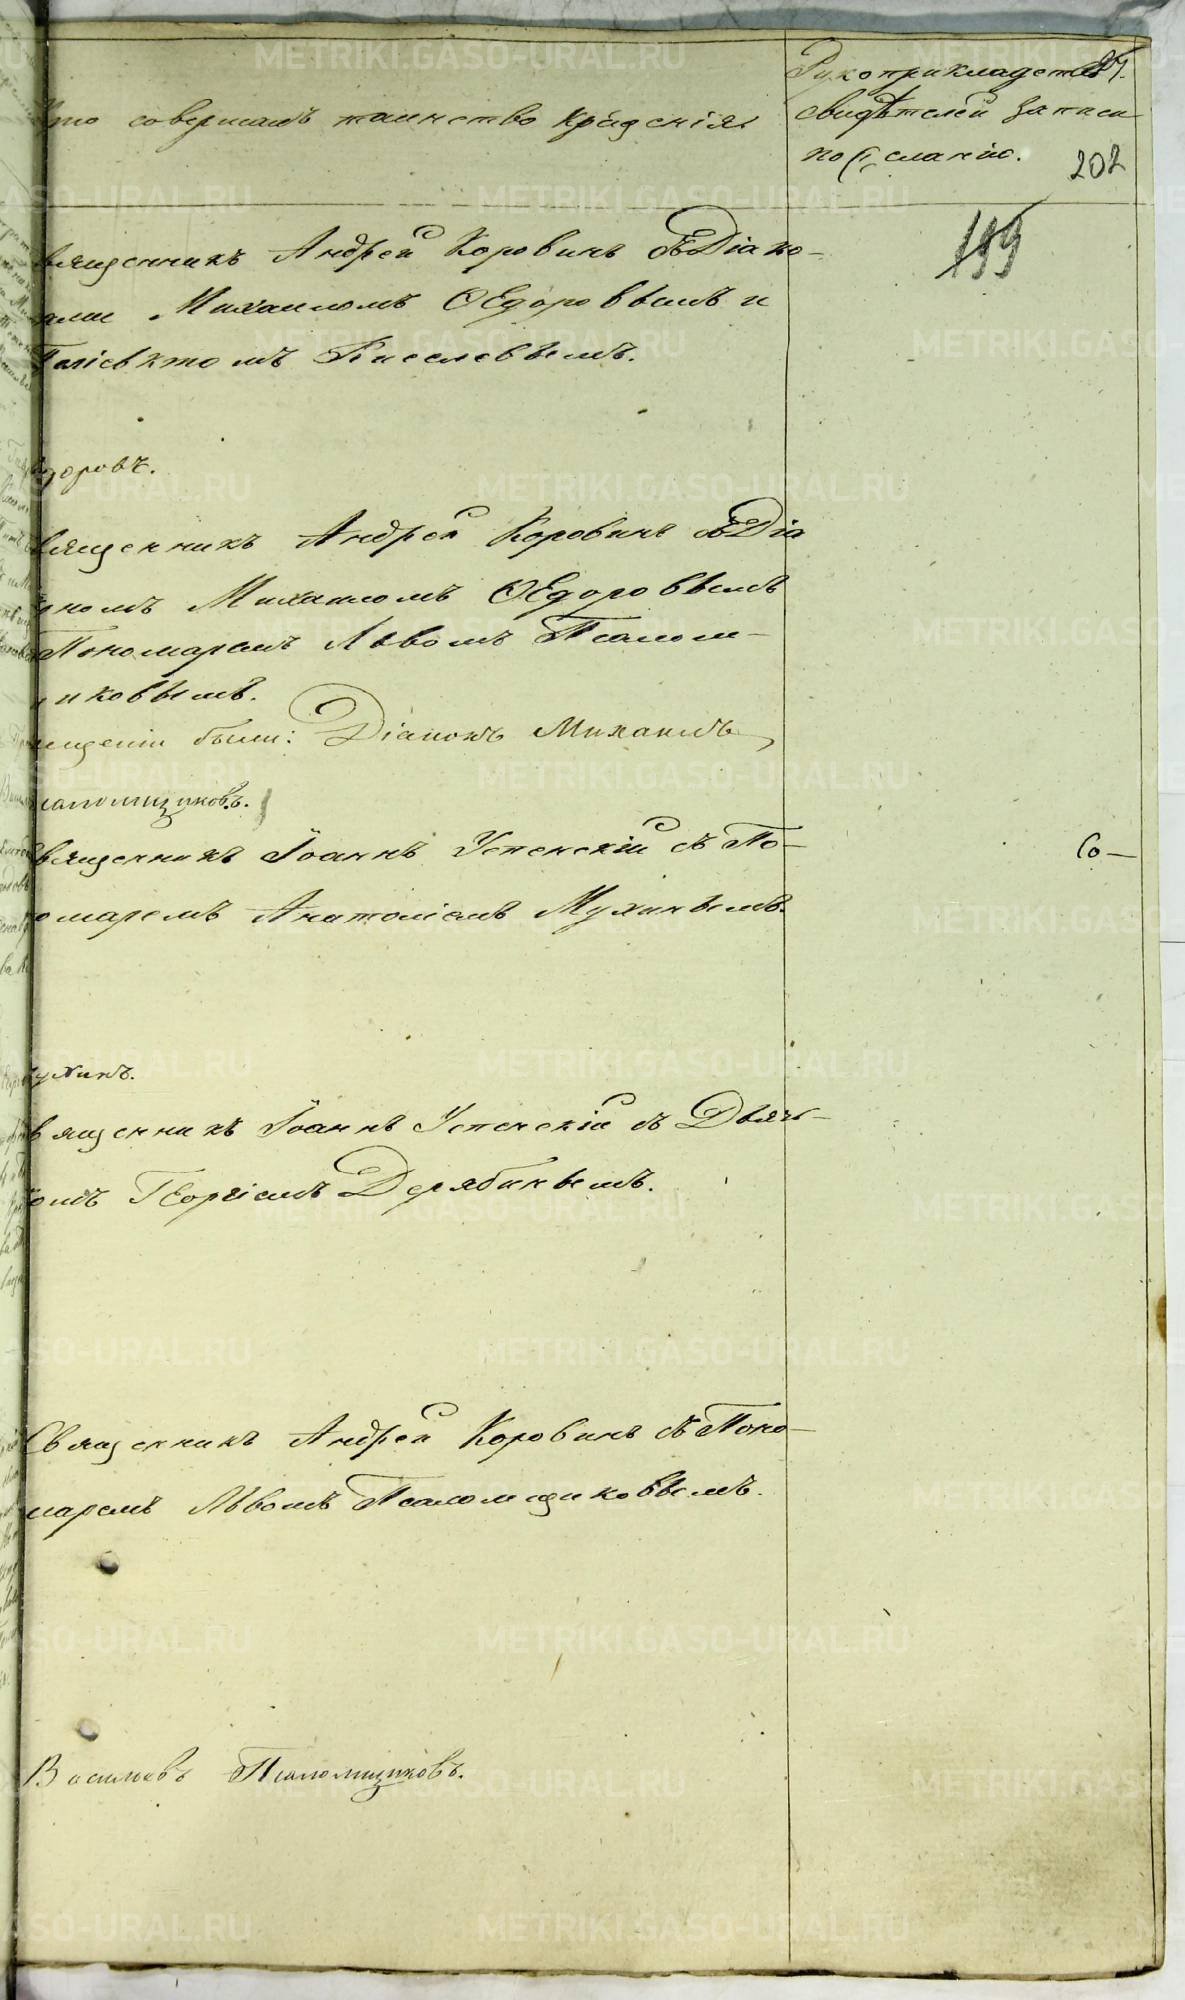 Кто совершалъ таинство крещенія
Рукоприкладство
свидѣтелей записи
по желанію.
202
199
Священникъ Андрей Коровинъ съ Діако-
нами Михаиломъ Ѳедоровымъ и
Поліевктомъ Киселевымъ.
Ѳедоровъ.
Священникъ Андрей Коровинъ съ Діа
кономъ Михаиломъ Ѳедоровымъ
Пономаремъ Львомъ Псалом-
щиковымъ.
были: Діаконъ Михаилъ
Псаломщиковъ.
Священникъ Іоаннъ Успенскій съ По-
номаремъ Анатоліемъ Мухинымъ.
Со-
Мухинъ.
Священникъ Іоаннъ Успенскій съ Дьяч-
комъ Георгіемъ Дерябинымъ.
Священникъ Андрей Коровинъ съ Поно-
маремъ Львомъ Псаломщиковымъ.
Васильевъ Псаломщиковъ.
METRIKI.GASO-URAL.RU